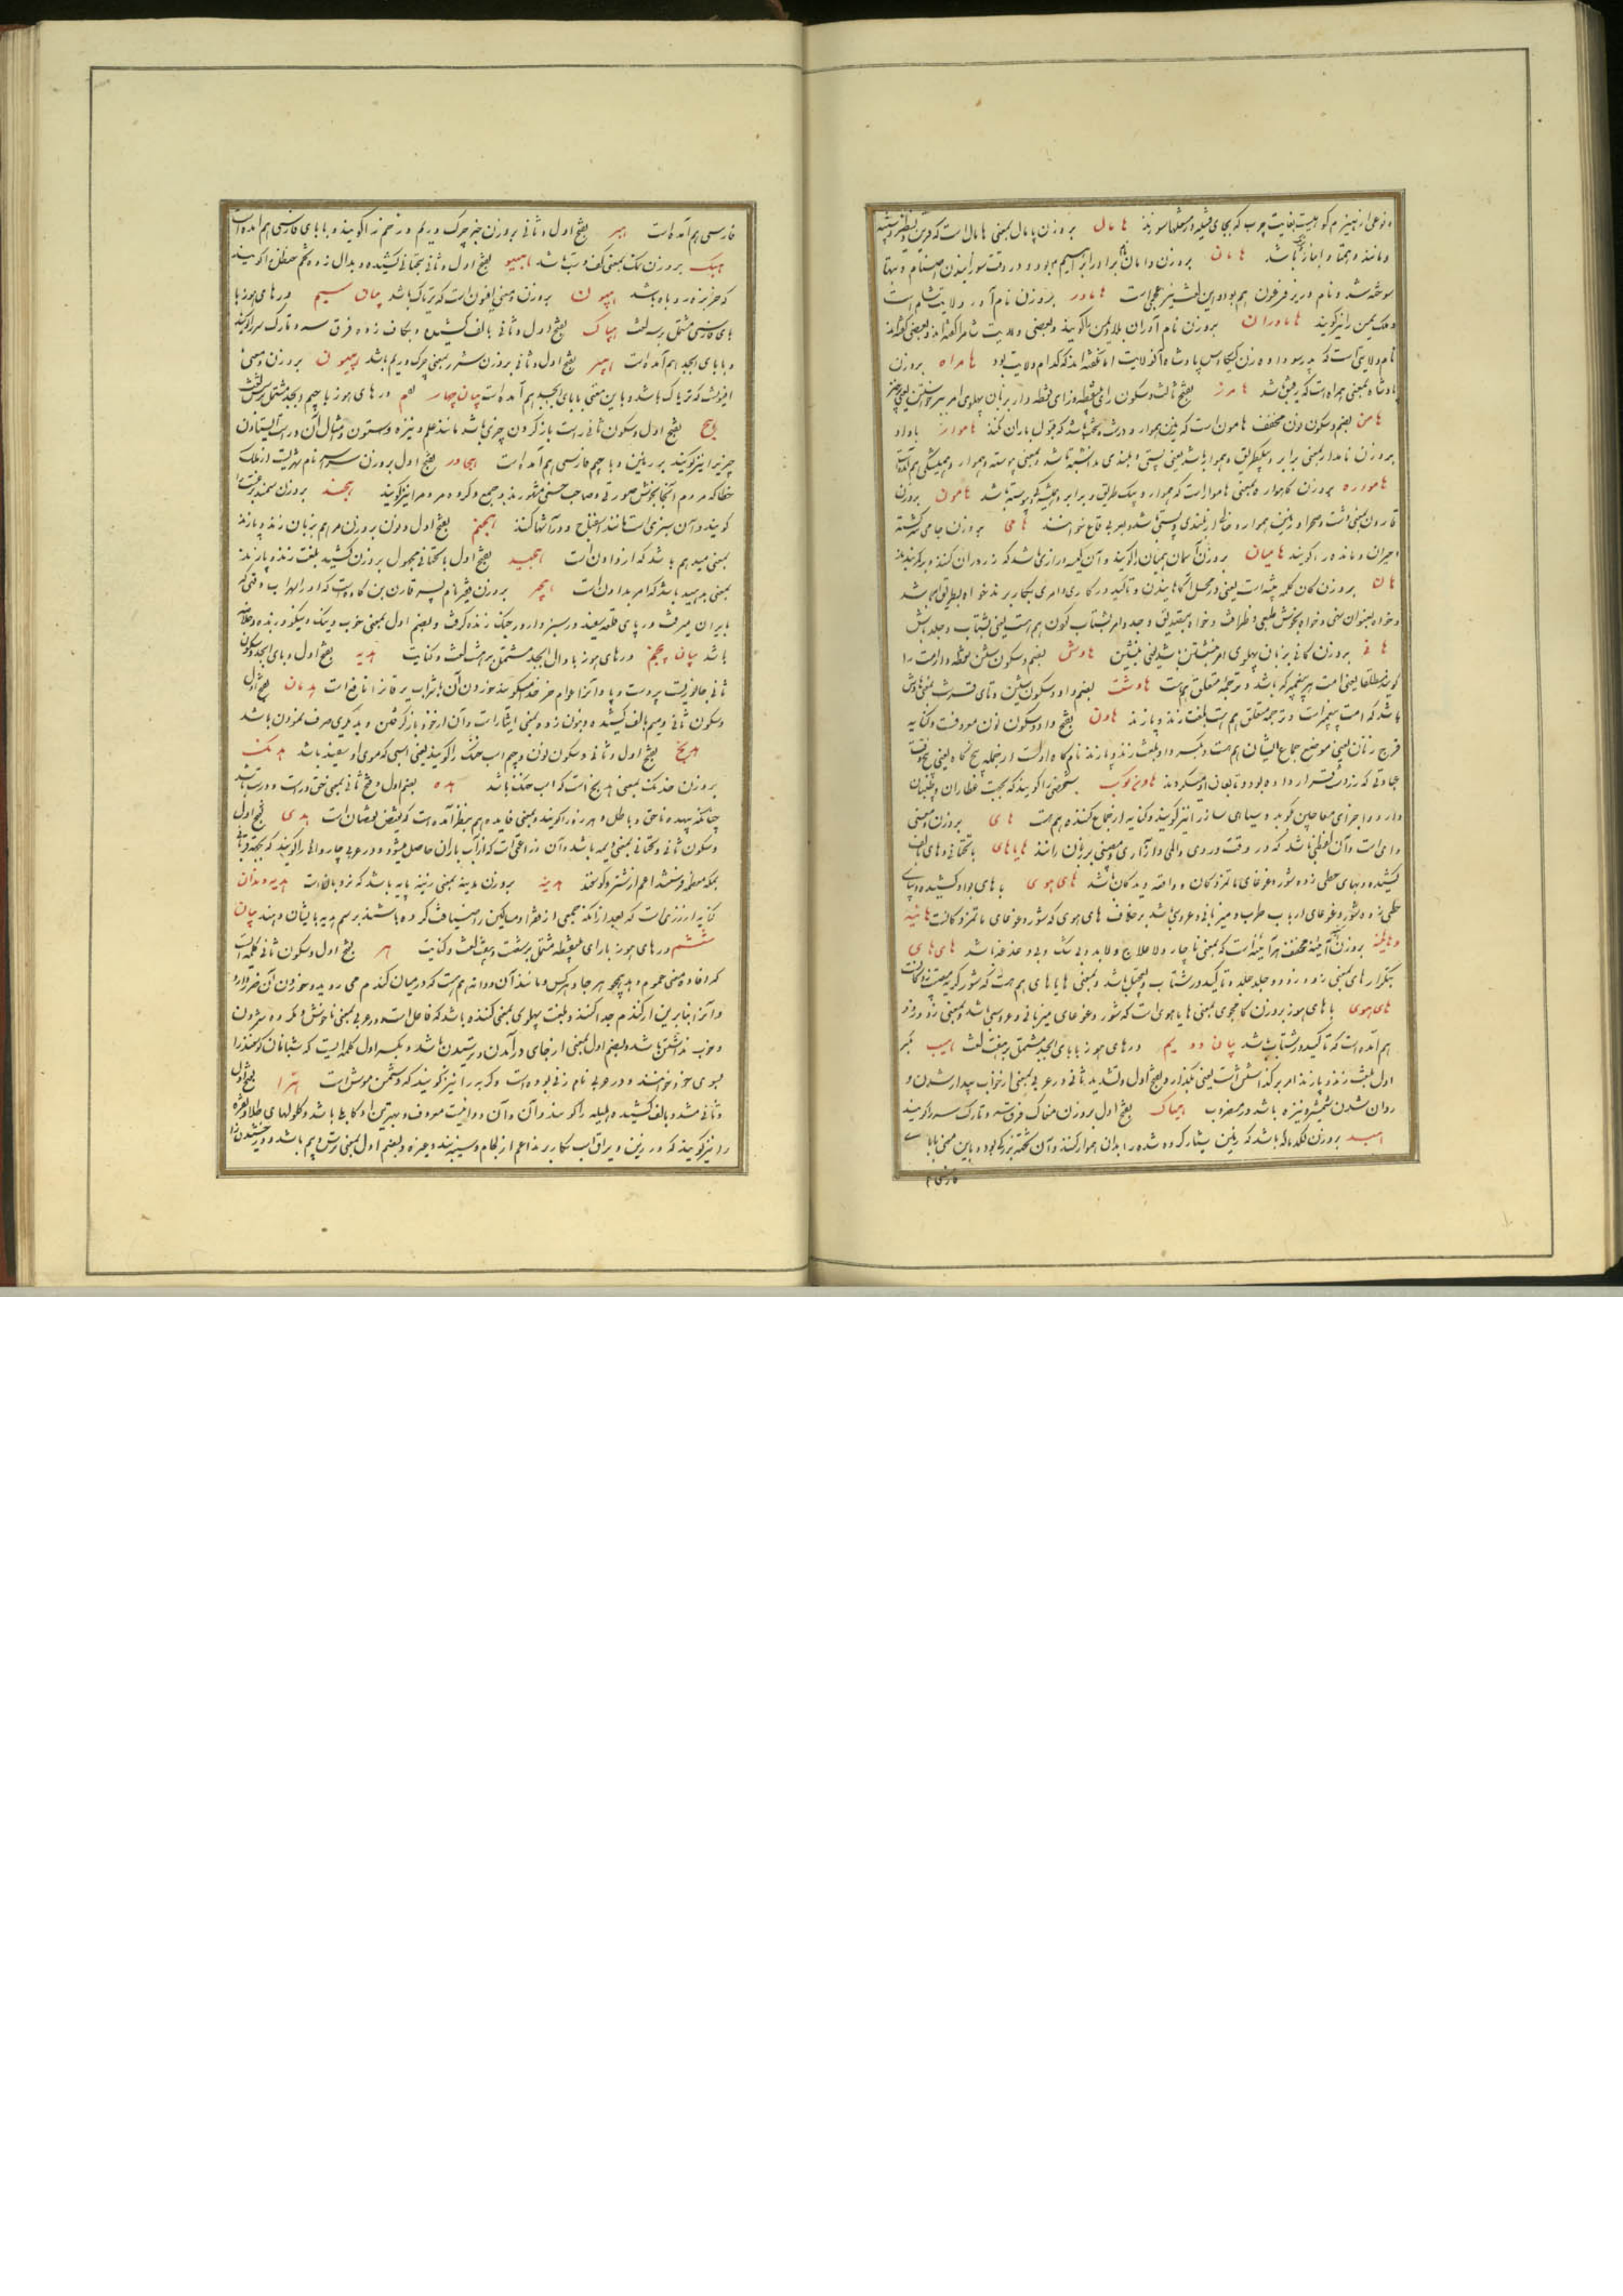 و نوعی از هیزم کوهیست بغایت چرب که بجای فتیله در مشعلها سوزند هامال بر وزن پامال بمعنی همال است که قرین و نظیر و شبیه
و مانند و همتا و انباز باشد هامان بر وزن دامان نام برادر ابراهیم بود و در وقت سوزانیدن اصنام و بتها
سوخته شد و نام وزیر فرعون هم بوده و این لغت نیز عجمی است هاماور بر وزن نام آور ولایت شام است
و ملک یمن را نیز گویند هاماوران بر وزن نام آوران بلاد یمن را گویند و بعضی ولایت شام را گفته اند و بعضی گفته اند
نام ولایتی است که پدر سودابه زن کیکاوس پادشاه آن ولایت بود اما نگفته اند که کدام ولایت بود هامراه بر وزن
پادشاه بمعنی همراه است که رفیق باشد هامرز بفتح ثالث و سکون رای بی نقطه و زای نقطه دار بزبان پهلوی امر ببرخاستن یعنی برخیز
هامن بضم و سکون نون مخفف هامون است که زمین هموار و درشت و سخت باشد که قبول باران نکند هاموار با واو
بر وزن نامدار بمعنی برابر و یکطریق و هموار باشد یعنی پستی و بلندی نداشته باشد و بمعنی پیوسته و هموار و همیشگی هم آمده است
هامواره بر وزن کاهواره بمعنی هاموار است که هموار و یک طریق و برابر و همیشه و پیوسته باشد هامون بر وزن
قارون بمعنی دشت و صحرا و زمین هموار و خالی از بلندی و پستی باشد و بعربی قاع خوانند هامی بر وزن جامی سرگشته
و حیران و مانده را گویند هامیان بر وزن آسمان همیان را گویند و آن کیسه درازی باشد که زر در آن کنند و بر کمر بندند
هان بر وزن کان کلمه تنبیه است یعنی در محل آگاهانیدن و تأکید در کاری و امری بکار برند خواه بطریق امر باشد
و خواه بعنوان نهی و خواه بخوش طبعی و ظرافت و خواه بتصدیق و جد و امر بشتاب کردن هم هست یعنی بشتاب و جلد باش
هانی بر وزن کانی بزبان پهلوی امر بنشاندن باشد یعنی بنشین هاوش بضم و سکون شین نقطه دار امت را
گویند مطلقا یعنی امت هر پیغمبر که باشد و ترجمه متعلق هم هست هاوشت بضم واو و سکون شین و تای قرشت بمعنی هاوش
باشد که امت پیغمبر است و ترجمه متعلق هم هست بلغت زند و پازند هاون بفتح واو و سکون نون معروفست و کنایه
فرج زنان یعنی موضع جماع ایشان هم هست و بکسر واو بلغت زند و پازند نام گاه اول است از جمله پنج گاه یعنی پنج وقت
عبادتی که زردشت قرار داده بود و تابعان او میکردند هاون کوب شخصی را گویند که بجهت عطاران و طبیبان
دارو و اجزای معاجین کوبد و سیاهی ساز را نیز گویند و کنایه از جماع کننده هم هست های بر وزن و معنی
وای است و آن لفظی باشد که در وقت دردی و المی و آزاری و مصیبتی بر زبان رانند هایاهای با تحتانی و های بالف
کشیده و بیای حطی زده شور و غوغای ماتم زدگان و واقعه دیدگان باشد های هوی با های بواو کشیده و بیای
حطی زده شور و غوغای ارباب طرب و میزبانی و عروسی باشد برخلاف های های که شور و غوغای ماتم زدگانست هایینه
و هایینه بر وزن آیینه مخفف هرآیینه است که بمعنی ناچار و لا علاج و لابد و بی شک و بی دغدغه باشد های های
بتکرار های بمعنی زود زود و جلد جلد و تأکید در شتاب و تعجیل باشد و بمعنی هایاهای هم هست که شور گریه مصیبت زدگانست
های هوی با های هوز بر وزن کامجوی بمعنی هایاهوی است که شور و غوغای میزبانی و عروسی باشد و بمعنی زود زود
هم آمده است که تأکید در شتاب باشد بیان دویم در های هوز با بای ابجد مشتمل بر هفت لغت هبب بکسر
اول بلغت زند و پازند امر بر گذاشتن است یعنی بگذار و بفتح اول و تشدید ثانی در عربی بمعنی از خواب بیدار شدن و
روان شدن شمشیر و نیزه باشد در مضروب هباک بفتح اول بر وزن مغاک فرق سر و تارک سر را گویند
هبد بر وزن لگد ماله باشد که زمین شیار کرده شده را بدان هموار کنند و آن تخته بزرگی بود و باین معنی با بای
فارسی
فارسی هم آمده است هبر بفتح اول و ثانی بر وزن خبر چرک و ریم و زخم را گویند و با بای فارسی هم آمده است
هبک بر وزن نمک بمعنی کف دست باشد هبید بفتح اول و ثانی بتحتانی کشیده و بدال زده تخم حنظل را گویند
که خربزه روباه باشد هپیون بر وزن و معنی افیون است که تریاک باشد بیان سیم در های هوز با
بای فارسی مشتمل بر سه لغت هپاک بفتح اول و ثانی بالف کشیده و بکاف زده فرق سر و تارک سر را گویند
و با بای ابجد هم آمده است هپر بفتح اول و ثانی بر وزن شرر بمعنی چرک و ریم باشد هپیون بر وزن و معنی
افیونست که تریاک باشد و باین معنی با بای ابجد هم آمده است بیان چهارم در های هوز با جیم ابجد مشتمل بر شش لغت
هج بفتح اول و سکون ثانی راست باز کردن چیزی باشد مانند علم و نیزه و ستون و امثال آن و راست ایستادن
چیز را نیز گویند بر زمین و با جیم فارسی هم آمده است هجاور بفتح اول بر وزن سراسر نام شهریست از ملک
خطا که مردم آنجا بخوش صورتی و صاحب حسنی مشهورند و جمع و گروه مردم را نیز گویند هجند بر وزن سمند برغست را
گویند و آن سبزی است مانند اسفناج و در آشها کنند هجنم بفتح اول و نون بر وزن مرهم بزبان زند و پازند
بمعنی میدهم باشد که از دادن است هجید بفتح اول با تحتانی مجهول بر وزن کشید بلغت زند و پازند
بمعنی بدهید باشد که امر بدادن است هجیر بر وزن وزیر نام پسر قارن بن کاوه است که او را سهراب وقتی که
بایران میرفت در پای قلعه سفید در سبزوار در جنگ زنده گرفت و بضم اول بمعنی خوب و نیک و نیکو و زبده و خلاصه
باشد بیان پنجم در های هوز با دال ابجد مشتمل بر هشت لغت و کنایت هدبه بفتح اول و بای ابجد و سکون
ثانی جانوریست پر دست و پا و آنرا عوام خر خدا میگویند خوردن آن با شراب یرقان را نافع است هدمان بفتح اول
و سکون ثانی و میم بالف کشیده و بنون زده بمعنی ایثار است و آن از خود باز گرفتن و بدیگری صرف نمودن باشد
هدنج بفتح اول و ثانی و سکون نون و جیم اسب خنگ را گویند یعنی اسبی که موی او سفید باشد هدنگ
بر وزن خدنگ بمعنی هدنج است که اسب خنگ باشد هده بضم اول و فتح ثانی بمعنی حق و راست و درست باشد
چنانکه بیهده ناحق و باطل و هرزه را گویند و بمعنی فایده هم بنظر آمده است که نقیض نقصان است هدی بفتح اول
و سکون ثانی و تحتانی بمعنی دیمه باشد و آن زراعتی است که از آب باران حاصل میشود و در عربی چاروائی را گویند که بجهت قربانی
بمکه معظمه فرستند اعم از شتر و گوسفند هدینه بر وزن مدینه بمعنی زینه پایه باشد که نردبان است هدیه دندان
کنایه از زری است که بعد از آنکه جمعی از فقرا و مساکین را ضیافت کرده باشند برسم هدیه بایشان دهند بیان
ششم در های هوز با رای بی نقطه مشتمل بر شصت و پنج لغت و کنایت هر بفتح اول و سکون ثانی کلمه ایست
که افاده معنی عموم دهد همچو هر جا و هر کس و مانند آن و دانه هم هست که در میان گندم می روید و خوردن آن ضرر دارد
و آنرا بنابرین از گندم جدا کنند و بلغت پهلوی بمعنی کننده باشد که فاعل است و در عربی بمعنی ناخوش و مکروه شمردن
و خوب نداشتن باشد و بضم اول بمعنی از جای در آمدن و ترسیدن باشد و بکسر اول کلمه ایست که شبانان گوسفند را
بسوی خود خوانند و در عربی نام زنی بوده است و گربه را نیز گویند که دشمن موش است هرا بفتح اول
و ثانی مشدد بالف کشیده هلیله را گویند و آن دوائیست معروف و بهترین او کابلی باشد و گلوله های طلا و نقره
را نیز گویند که در زین و یراق اسب بکار برند اعم از لجام و سینه بند و غیره و بضم اول بمعنی ترس و بیم باشد و درخشیدن را